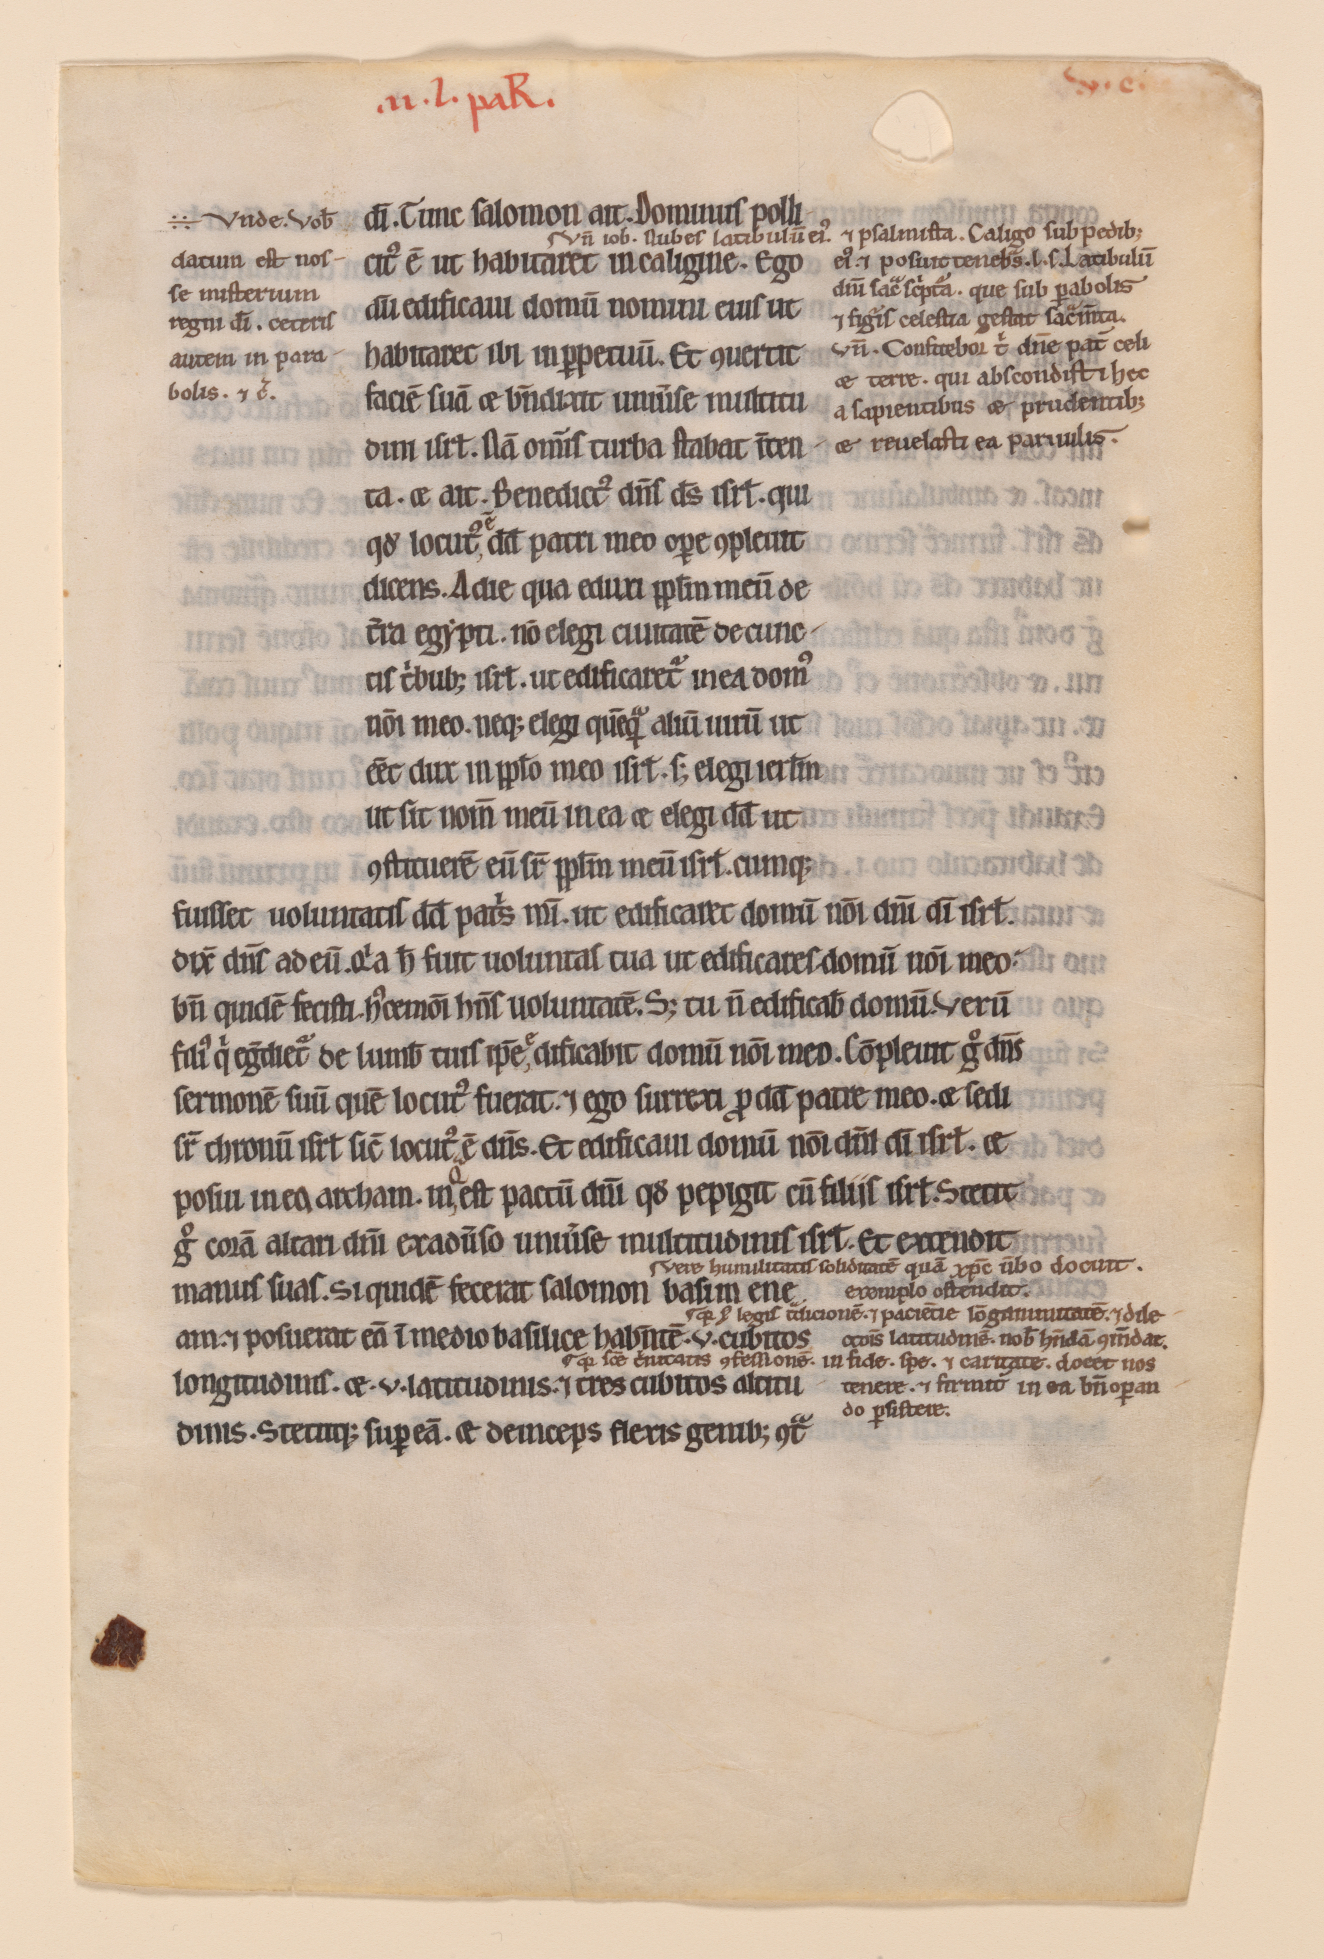 .II.L.PaR.
V.C.
dī. Tunc salomon ait. Dominus polli
citꝰ ē ut habitaret in caligine. Ego
aū edificaui domū nomini eius ut
habitaret ibi in ꝑpetuū. Et ꝯuertit
faciē suā ⁊ bn̄dixit uniu̾se multitu
dini isrl̄. Nā om̄is turba stabat īten
ta. ⁊ ait. Benedictꝰ dn̄s ds̄ isrl̄. qui
qd̄ locutꝰ ē dd̄ patri meo oꝑe ꝯpleuit
dicens. A die qua eduxi ppl̄m meū de
t̄ra egẏpti. nō elegi ciuitatē de cunc
tis t̾bub; isrl̄. ut edificaret᷑ in ea domꝰ
nōi meo. neq; elegi quēq᷑ aliū uirū ut
eēt dux in ppl̄o meo isrl̄. s; elegi ierl̄m
ut sit nom̄ meū in ea ⁊ elegi dd̄ ut
ꝯstituerē eū sr̄ ppl̄m meū isrl̄. cumq;
fuisset uoluntatis dd̄ pat̾s mī. ut edificaret domū nōi dn̄i dī isrl̄.
dix̄ dn̄s ad eū. Qi̾a h̄ fuit uoluntas tua ut edificares domū nōi meo.
bn̄ quidē fecisti hꝰcemōi hn̄s uoluntatē. S; tu n̄ edificab̄ domū. Verū
filiꝰ q̾ eg̾diet᷑ de lumb̄ tuis ip̄e edificabit domū nōi meo. Cōpleuit gͦ dn̄s
sermonē suū quē locutꝰ fuerat. ⁊ ego surrexi ꝓ dd̄ patre meo. ⁊ sedi
sr̄ thronū isrl̄ sic̄ locutꝰ ē dn̄s. Et edificaui domū nōi dn̄i dī isrl̄. ⁊
posui in ea archam. in q̾ est pactū dn̄i qd̄ pepigit cū filiis isrl̄. Stetit
gͦ corā altari dn̄i ex adu̾so uniu̾se multitudinis isrl̄. Et extendit
manus suas. Siquidē fecerat salomon basim ene
am. ⁊ posuerat eā ī medio basilice habn̄tē. v. cubitos
longitudinis. ⁊. v. latitudinis. ⁊ tres cubitos altitu
dinis. Stetitq; suꝑ eā. ⁊ deinceps flexis genib; ꝯt᷑
Vnde. Vob̄
datum est nos
se misterium
regni dī. ceteris
autem in para
bolis. ⁊ c̄.
Vn̄ iob. Nubes latibulū eiꝰ. ⁊ psalmista. Caligo sub pedib;
eiꝰ. ⁊ posuit teneb̾s. l. s. Latibulū
dn̄i sac᷑ sc̾pt᷑a. que sub ꝑabolis
⁊ figis celestia gestat sac̄m̄ta.
vn̄. Confitebor t̾ dn̄e pat̄ celi
⁊ terre. qui abscondisti hec
a sapientibus ⁊ prudentib;
⁊ reuelasti ea paruulis.
Vere humilitatis soliditatē quā xp̄c ūbo docuit.
exemplo ostendit.
legis t᷑dicionē. ⁊ pacientie lōganimitatē. ⁊ dile
ct̄ois latitudinē. nob̄ hn̄dā ꝯm̄dat.
sc̄e t̾nitatis ꝯfessionē. in fide. spe. ⁊ caritate. docet nos
tenere. ⁊ firmit̾ in ea bn̄ oꝑan
do ꝑsistere.